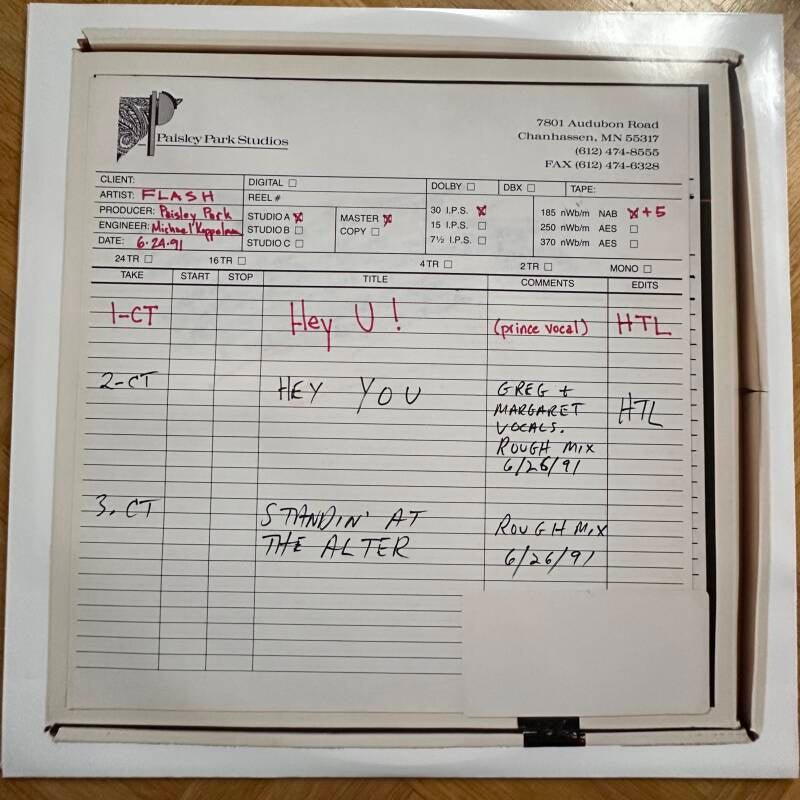 Paisley Park Studios
7801 Audubon Road
Chanhassen, MN 55317
(612) 474-8555
FAX (612) 474-6328
CLIENT:
ARTIST: FLASH
PRODUCER: Paisley Park
ENGINEER: Michael Koppelman
DATE: 6-24-91
DIGITAL
REEL #
STUDIO A X
STUDIO B
STUDIO C
MASTER X
COPY
DOLBY
DBX
TAPE:
30 I.P.S. X
15 I.P.S.
7½ I.P.S.
185 nWb/m NAB X +5
250 nWb/m AES
370 nWb/m AES
24 TR 16 TR 4 TR 2 TR MONO
TAKE START STOP TITLE COMMENTS EDITS
1-CT Hey U! (prince vocal) HTL
2-CT HEY YOU GREG + HTL
MARGARET
VOCALS.
ROUGH MIX
6/26/91
3. CT STANDIN' AT ROUGH MIX
THE ALTER 6/26/91